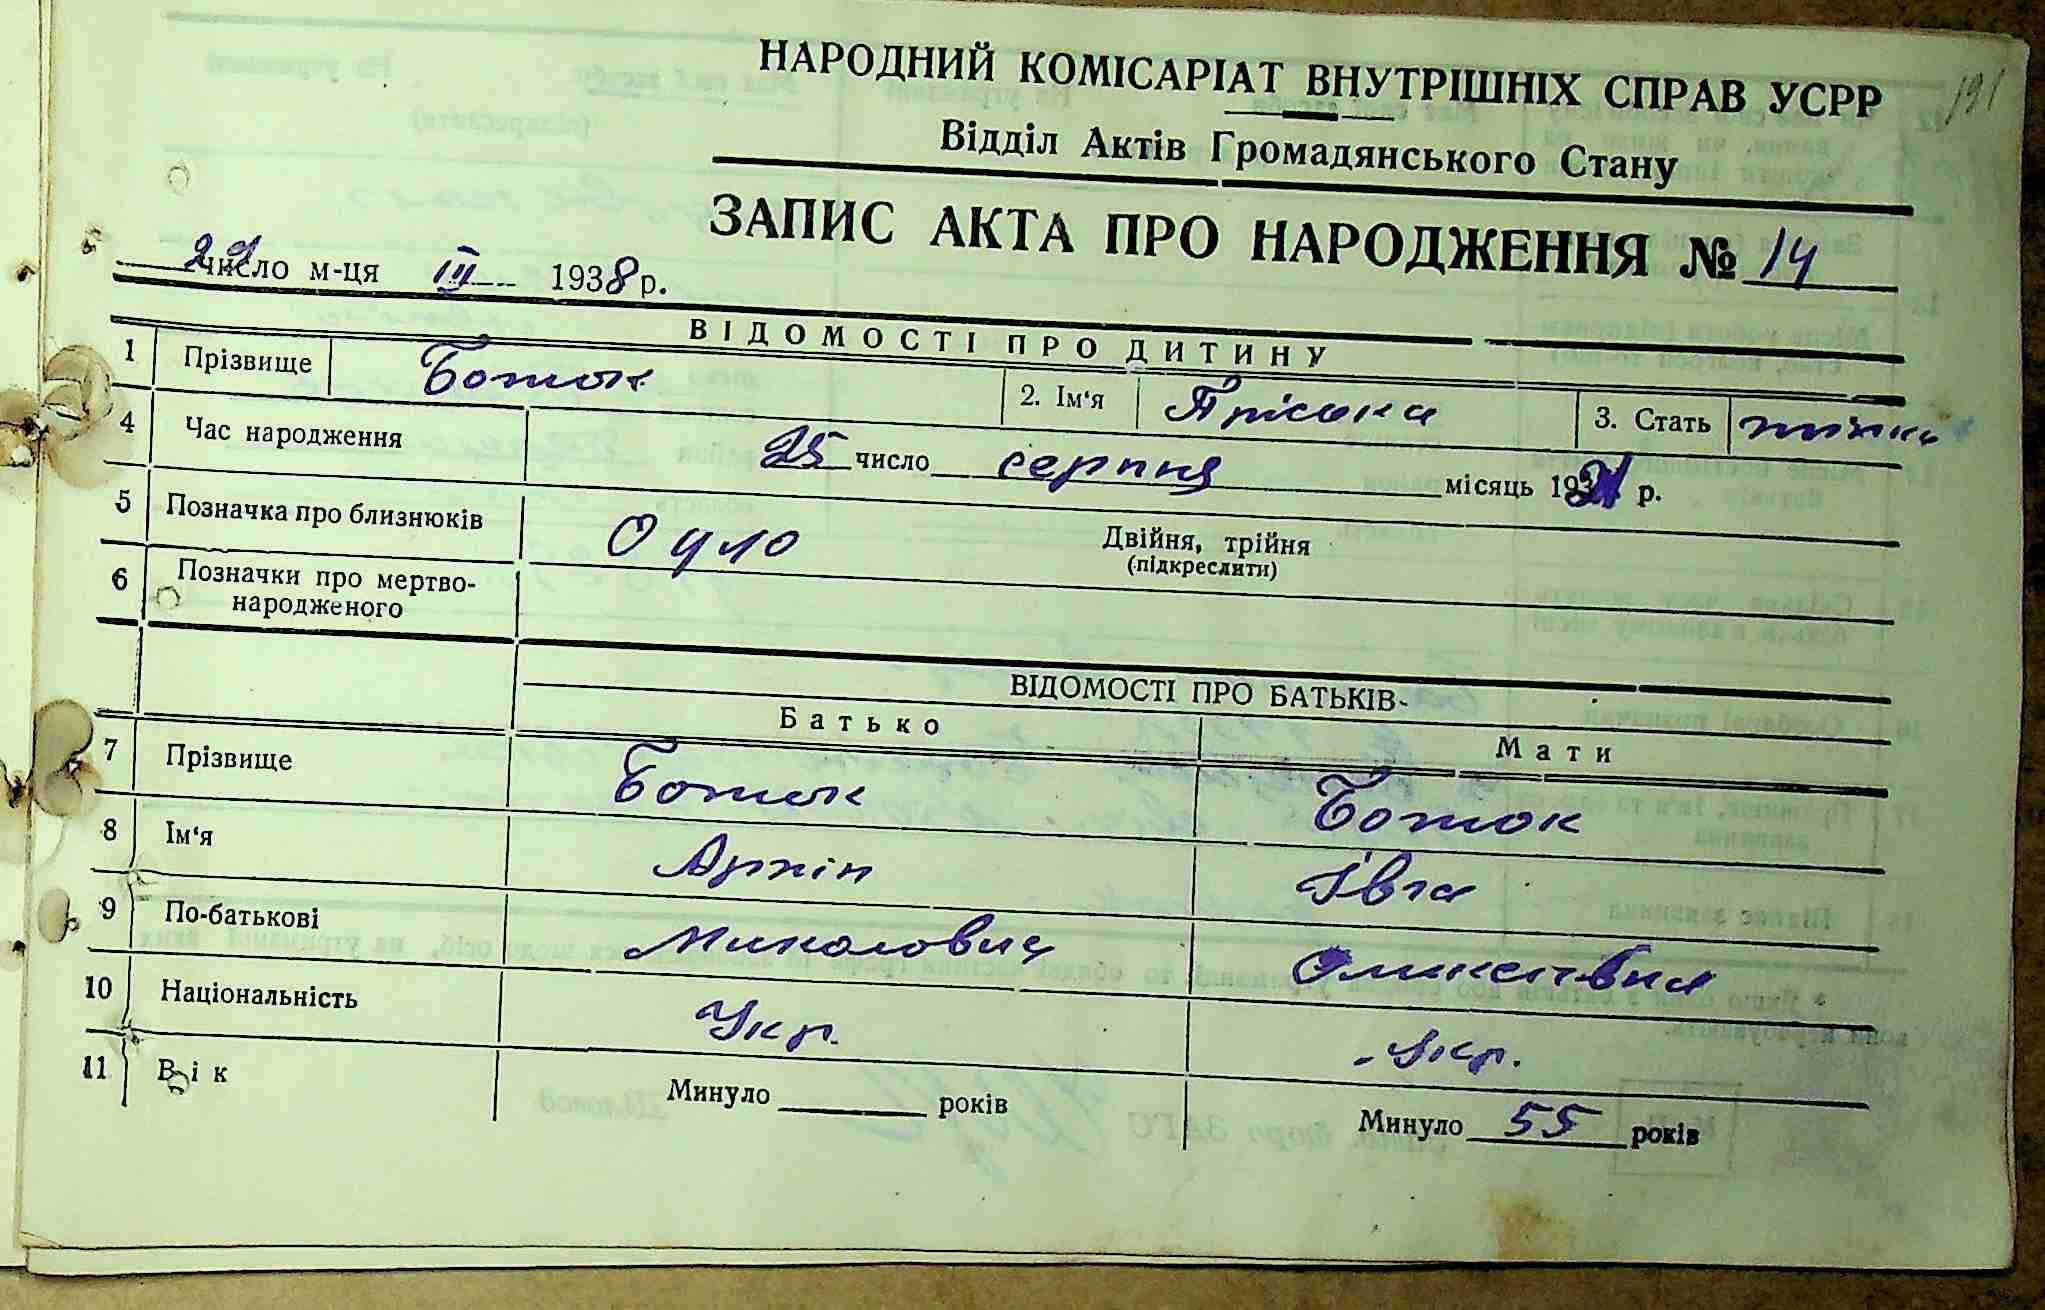 191
НАРОДНИЙ КОМІСАРІАТ ВНУТРІШНІХ СПРАВ УСРР
Відділ Актів Громадянського Стану
ЗАПИС АКТА ПРО НАРОДЖЕННЯ № 14
29 число м-ця III 1938 р.
ВІДОМОСТІ ПРО ДИТИНУ
1 Прізвище Ботюк 2. Ім‘я Пріська 3. Стать
4 Час народження 25 число серпня місяць 1921 р.
5 Позначка про близнюків Одно Двійня, трійня
(підкреслити)
6 Позначки про мертво-
народженого
ВІДОМОСТІ ПРО БАТЬКІВ
Батько Мати
7 Прізвище Ботюк Ботюк
8 Ім‘я Архіп Івга
9 По-батькові Миколович Оликсіївна
10 Національність Укр. Укр.
11 Вік Минуло років Минуло 55 років